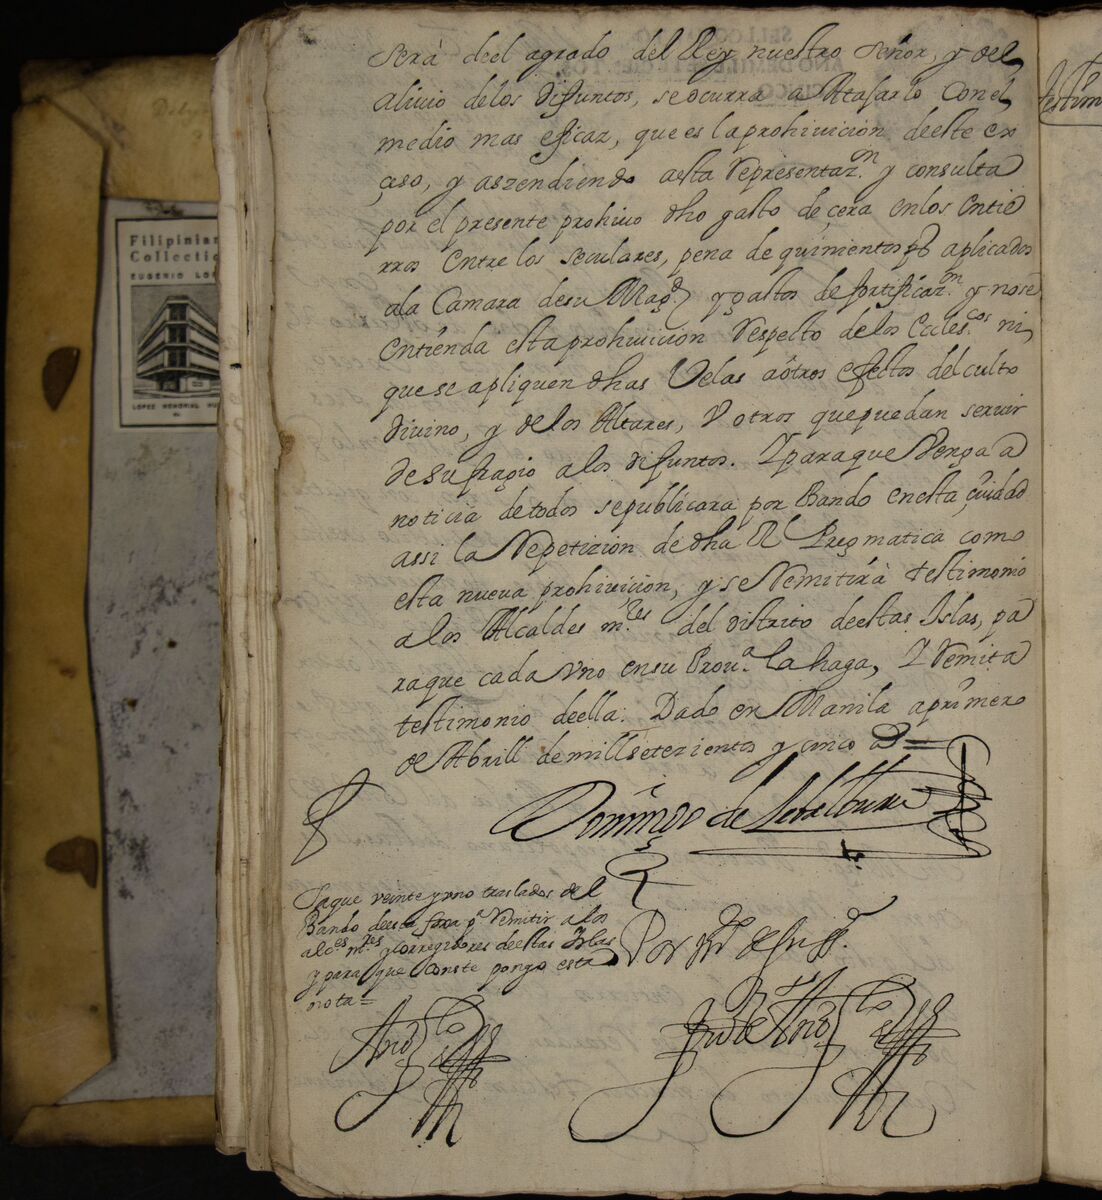 Filipinian
Collectio
EUGENIO LO
LOPEZ MEMORIAL MU
será deel agrado del Rey nuestro Señor, y del
alivio delos difuntos, se ocurra a Atajarlo Conel
medio mas eficaz, que es la prohivicion deeste ex
çeso, y aszendiendo aesta Representaz.on y consulta
por el presente prohivo dho gasto de çera enlos Entie
rros Entre los seculares, pena de quinientos ps aplicados
ala Camara desu Magd. y gastos de fortificaz.on y nose
Entienda esta prohivicion Respecto delos Eccles.cos ni
que se apliquen dhas Velas aótros efectos del culto
divino, y delos Altares, V otros quepuedan servir
desufragio alos difuntos. Y paraque Venga a
noticia detodos sepublicara por Bando enesta çiudad
assi la Repetizion de dha Rl Pregmatica como
esta nueva prohivicion, y se Remitirà testimonio
a los Alcaldes m.res del distrito deestas Islas, pa
raque cada Vno ensu Prov.a la haga, Y Remita
testimonio deella. Dado en Manila aprimero
de Abrill demill setezientos y cinco as
Domingo de Zabalburu
Saque veinte y vno traslados del
Bando deesta foxa p.a Remitir alos
alc.es m.res y Corregidores deestas Islas
y para que Conste pongo esta
nota=
Por md. desu ssa.
testim